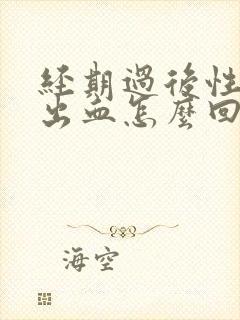 經期過後性
出血怎麼回
海空